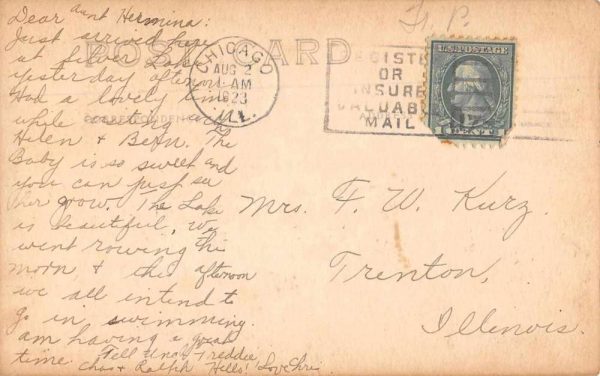 Dear Aunt Hermina:
Just arrived here
at Silver Lake
yesterday afternoon
Had a lovely time
while coming with
Helen & Ben. The
Baby is so sweet and
you can just see
her grow. The Lake
is beautiful. We
went rowing this
morn & this afternoon
we all intend to
go in swimming.
am having a great
time. Tell Uncle Freddie,
Chas & Ralph Hello! Love
POST CARD
CORRESPONDENCE
CHICAGO
AUG 2
AM
1923
ILL.
REGISTER
OR
INSURE
VALUABLE
MAIL
U.S. POSTAGE
Mrs. F. W. Kurz.
Trenton,
Illinois.